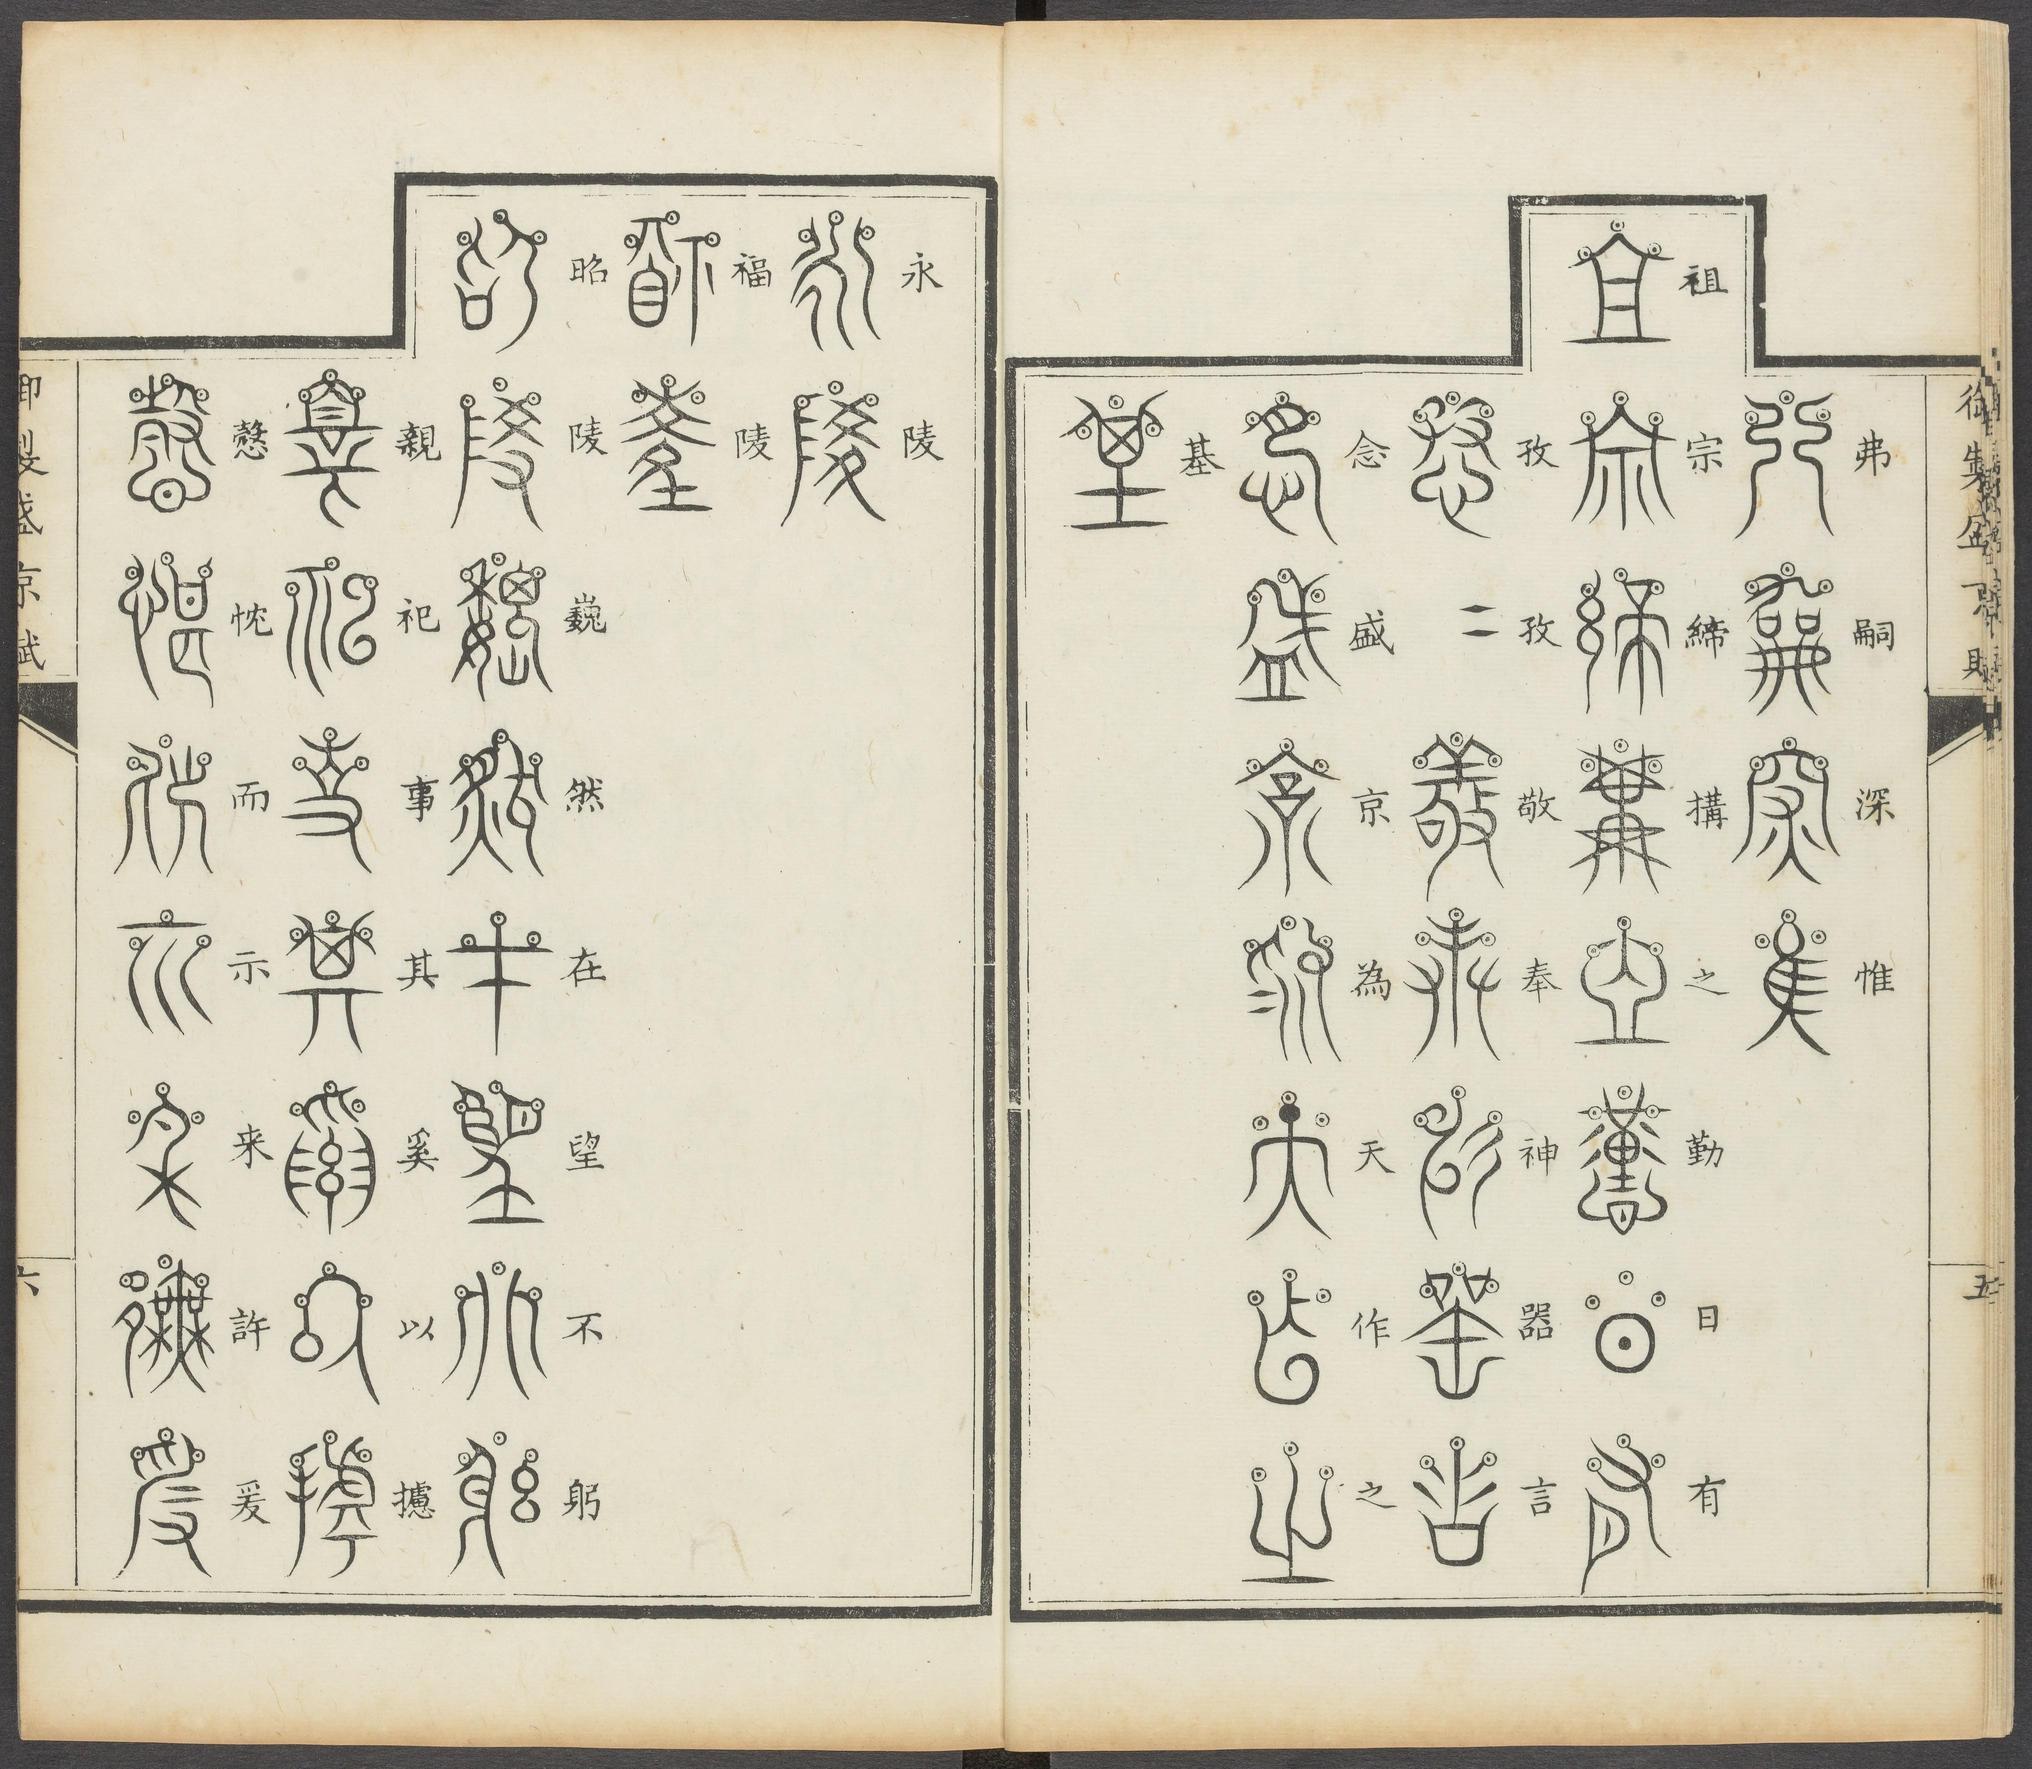 弗嗣深惟
祖宗締搆之勤日有
孜孜敬奉神器言
念盛京為天作之
基
永陵
福陵
昭陵巍然在望不躬
親祀事其奚以攄
慤忱而示来許爰
御製盛京賦
五
六